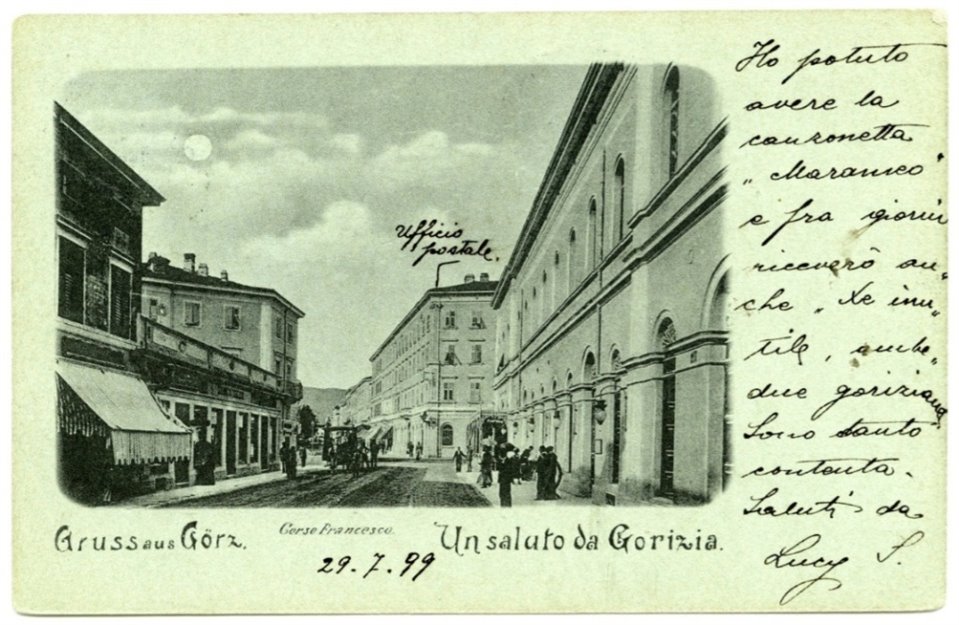 Ho potuto
avere la
canzonetta
"Maranieo"
e fra giorni
riceverò an"
che "Xe inu"
tile, ambe"
due goriziane
Sono tanto
contenta.
Saluti da
Lucy S.
Ufficio
postale.
Gruss aus Görz.
Corso Francesco.
Un saluto da Gorizia.
29.7.99